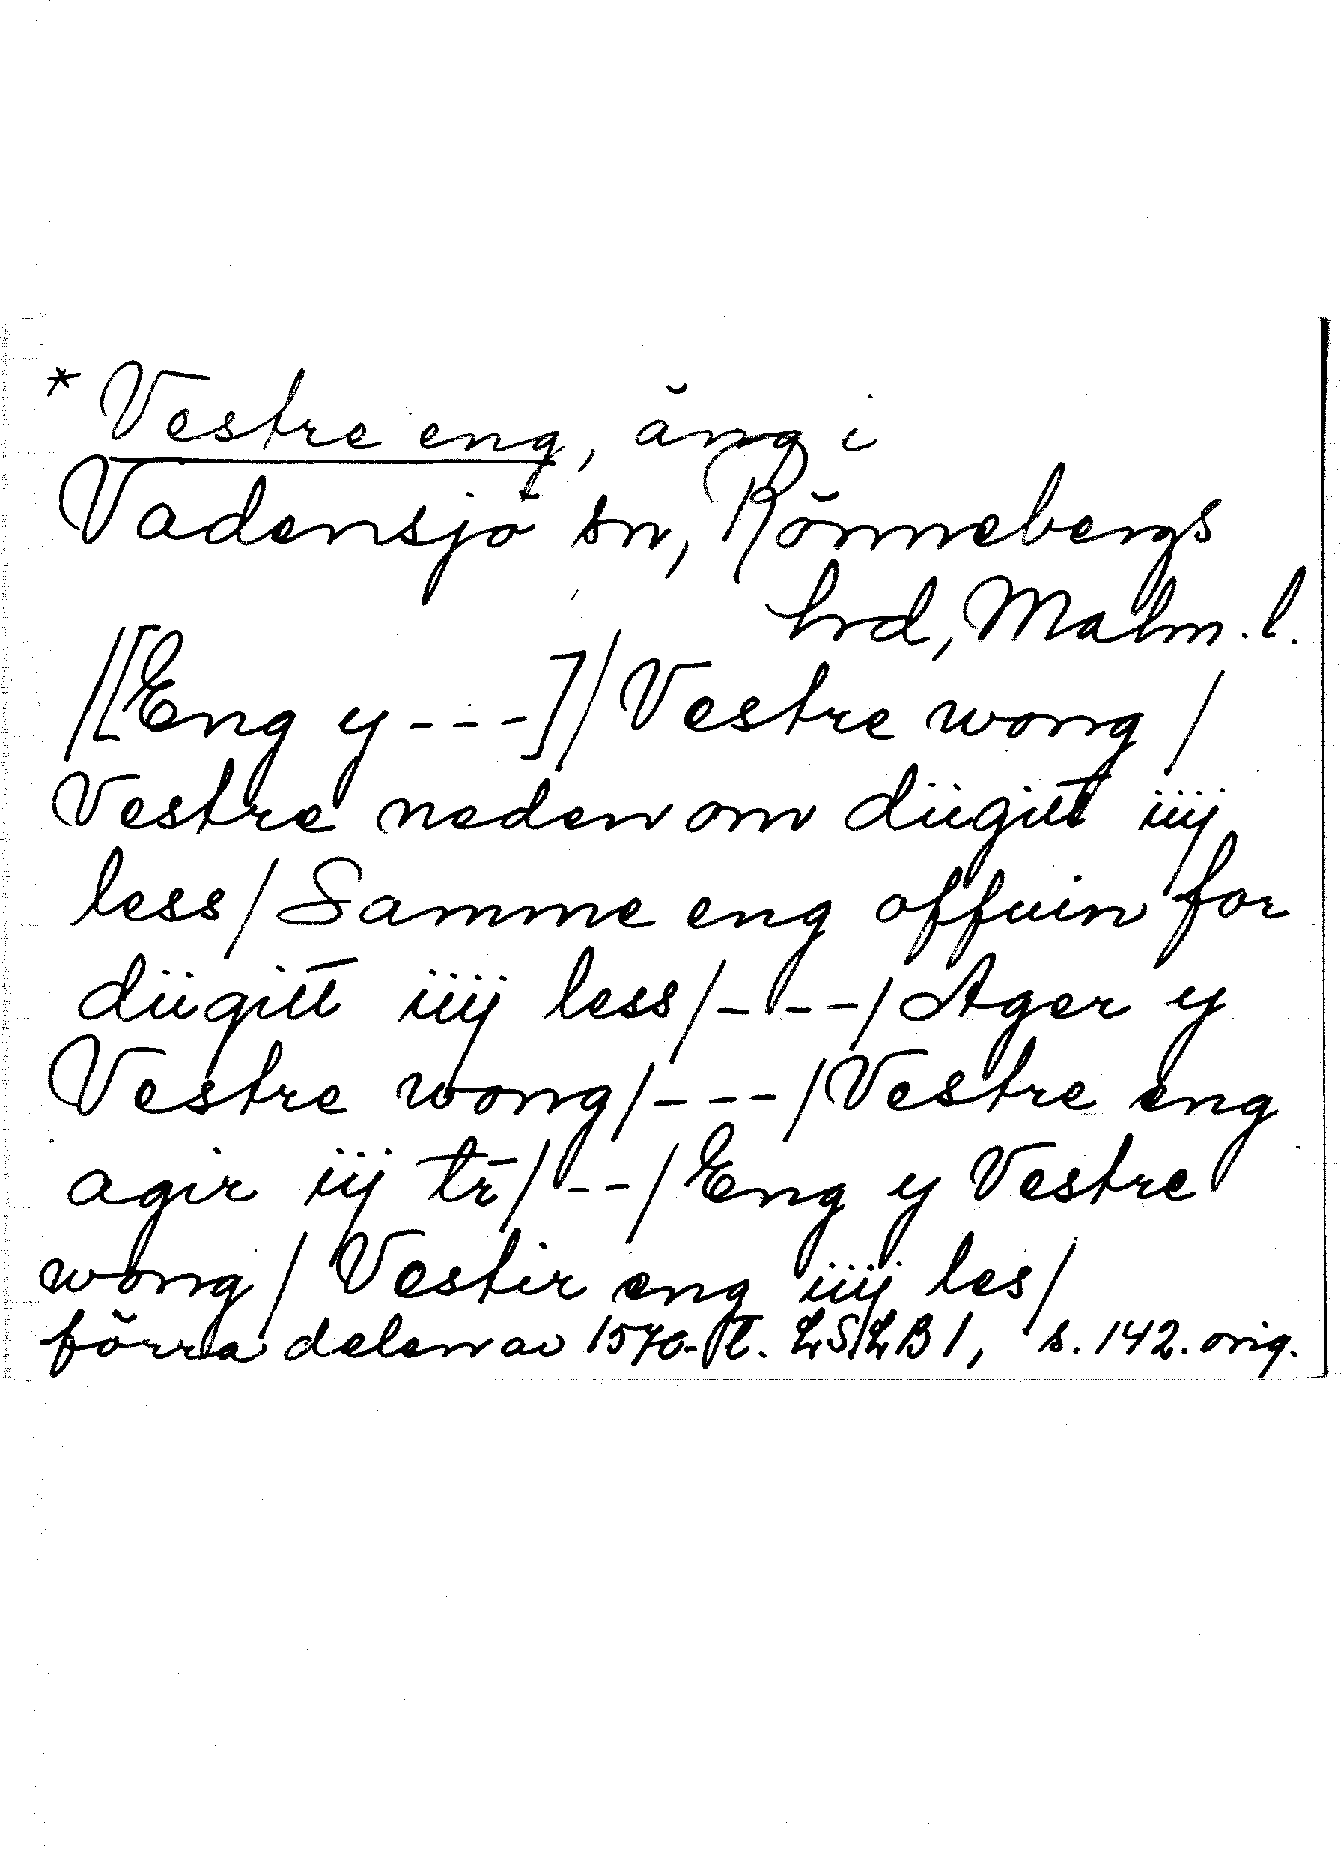 * Vestre eng, äng i
Vadensjö sn, Rönnebergs
hrd, Malm. l.
/[Eng y ---]/ Vestre wong /
Vestre neden om diigitt iiij
less / Samme eng offuin for
diigitt iiij less / --- / Ager y
Vestre wong / --- / Vestre eng
agir iij tr̄ / -- / Eng y Vestre
wong / Vestir eng iiij les /
förra delen av 1570-t. LSLB 1, s. 142. orig.